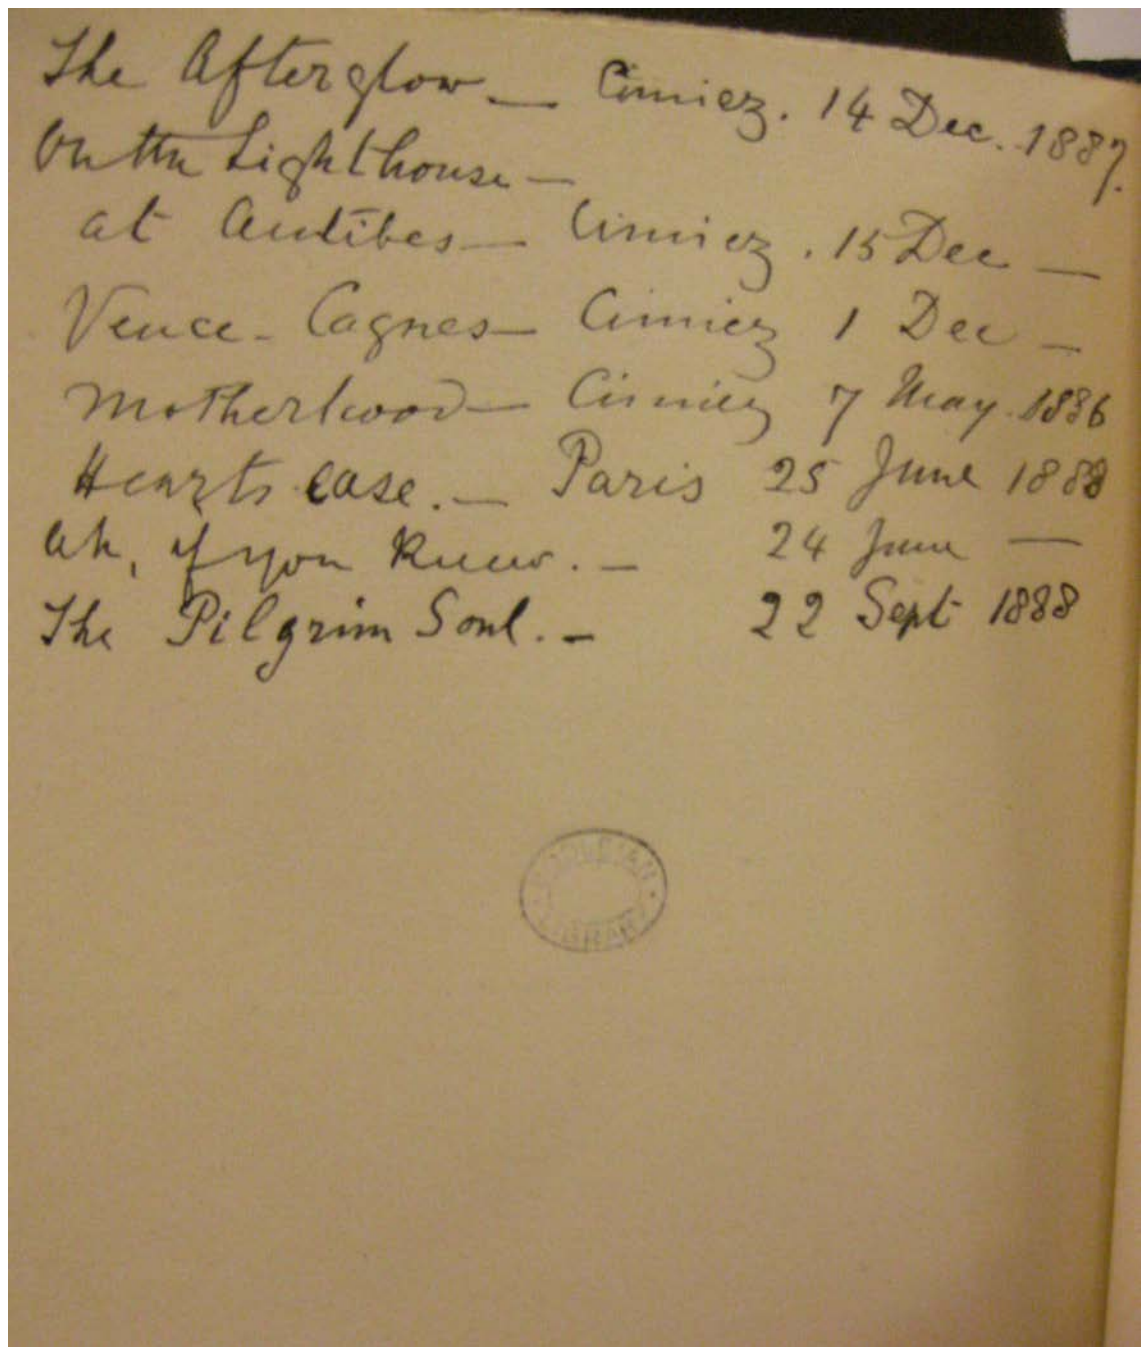 The Afterglow — Cimiez. 14 Dec. 1887.
On the Lighthouse —
at Antibes — Cimiez. 15 Dec —
Vence - Cagnes — Cimiez 1 Dec —
Motherhood — Cimiez 7 May. 1886
Hearts ease. — Paris 25 June 1888
Ah, if you knew. — 24 June —
The Pilgrim Soul. — 22 Sept 1888
BODLEIAN
LIBRARY